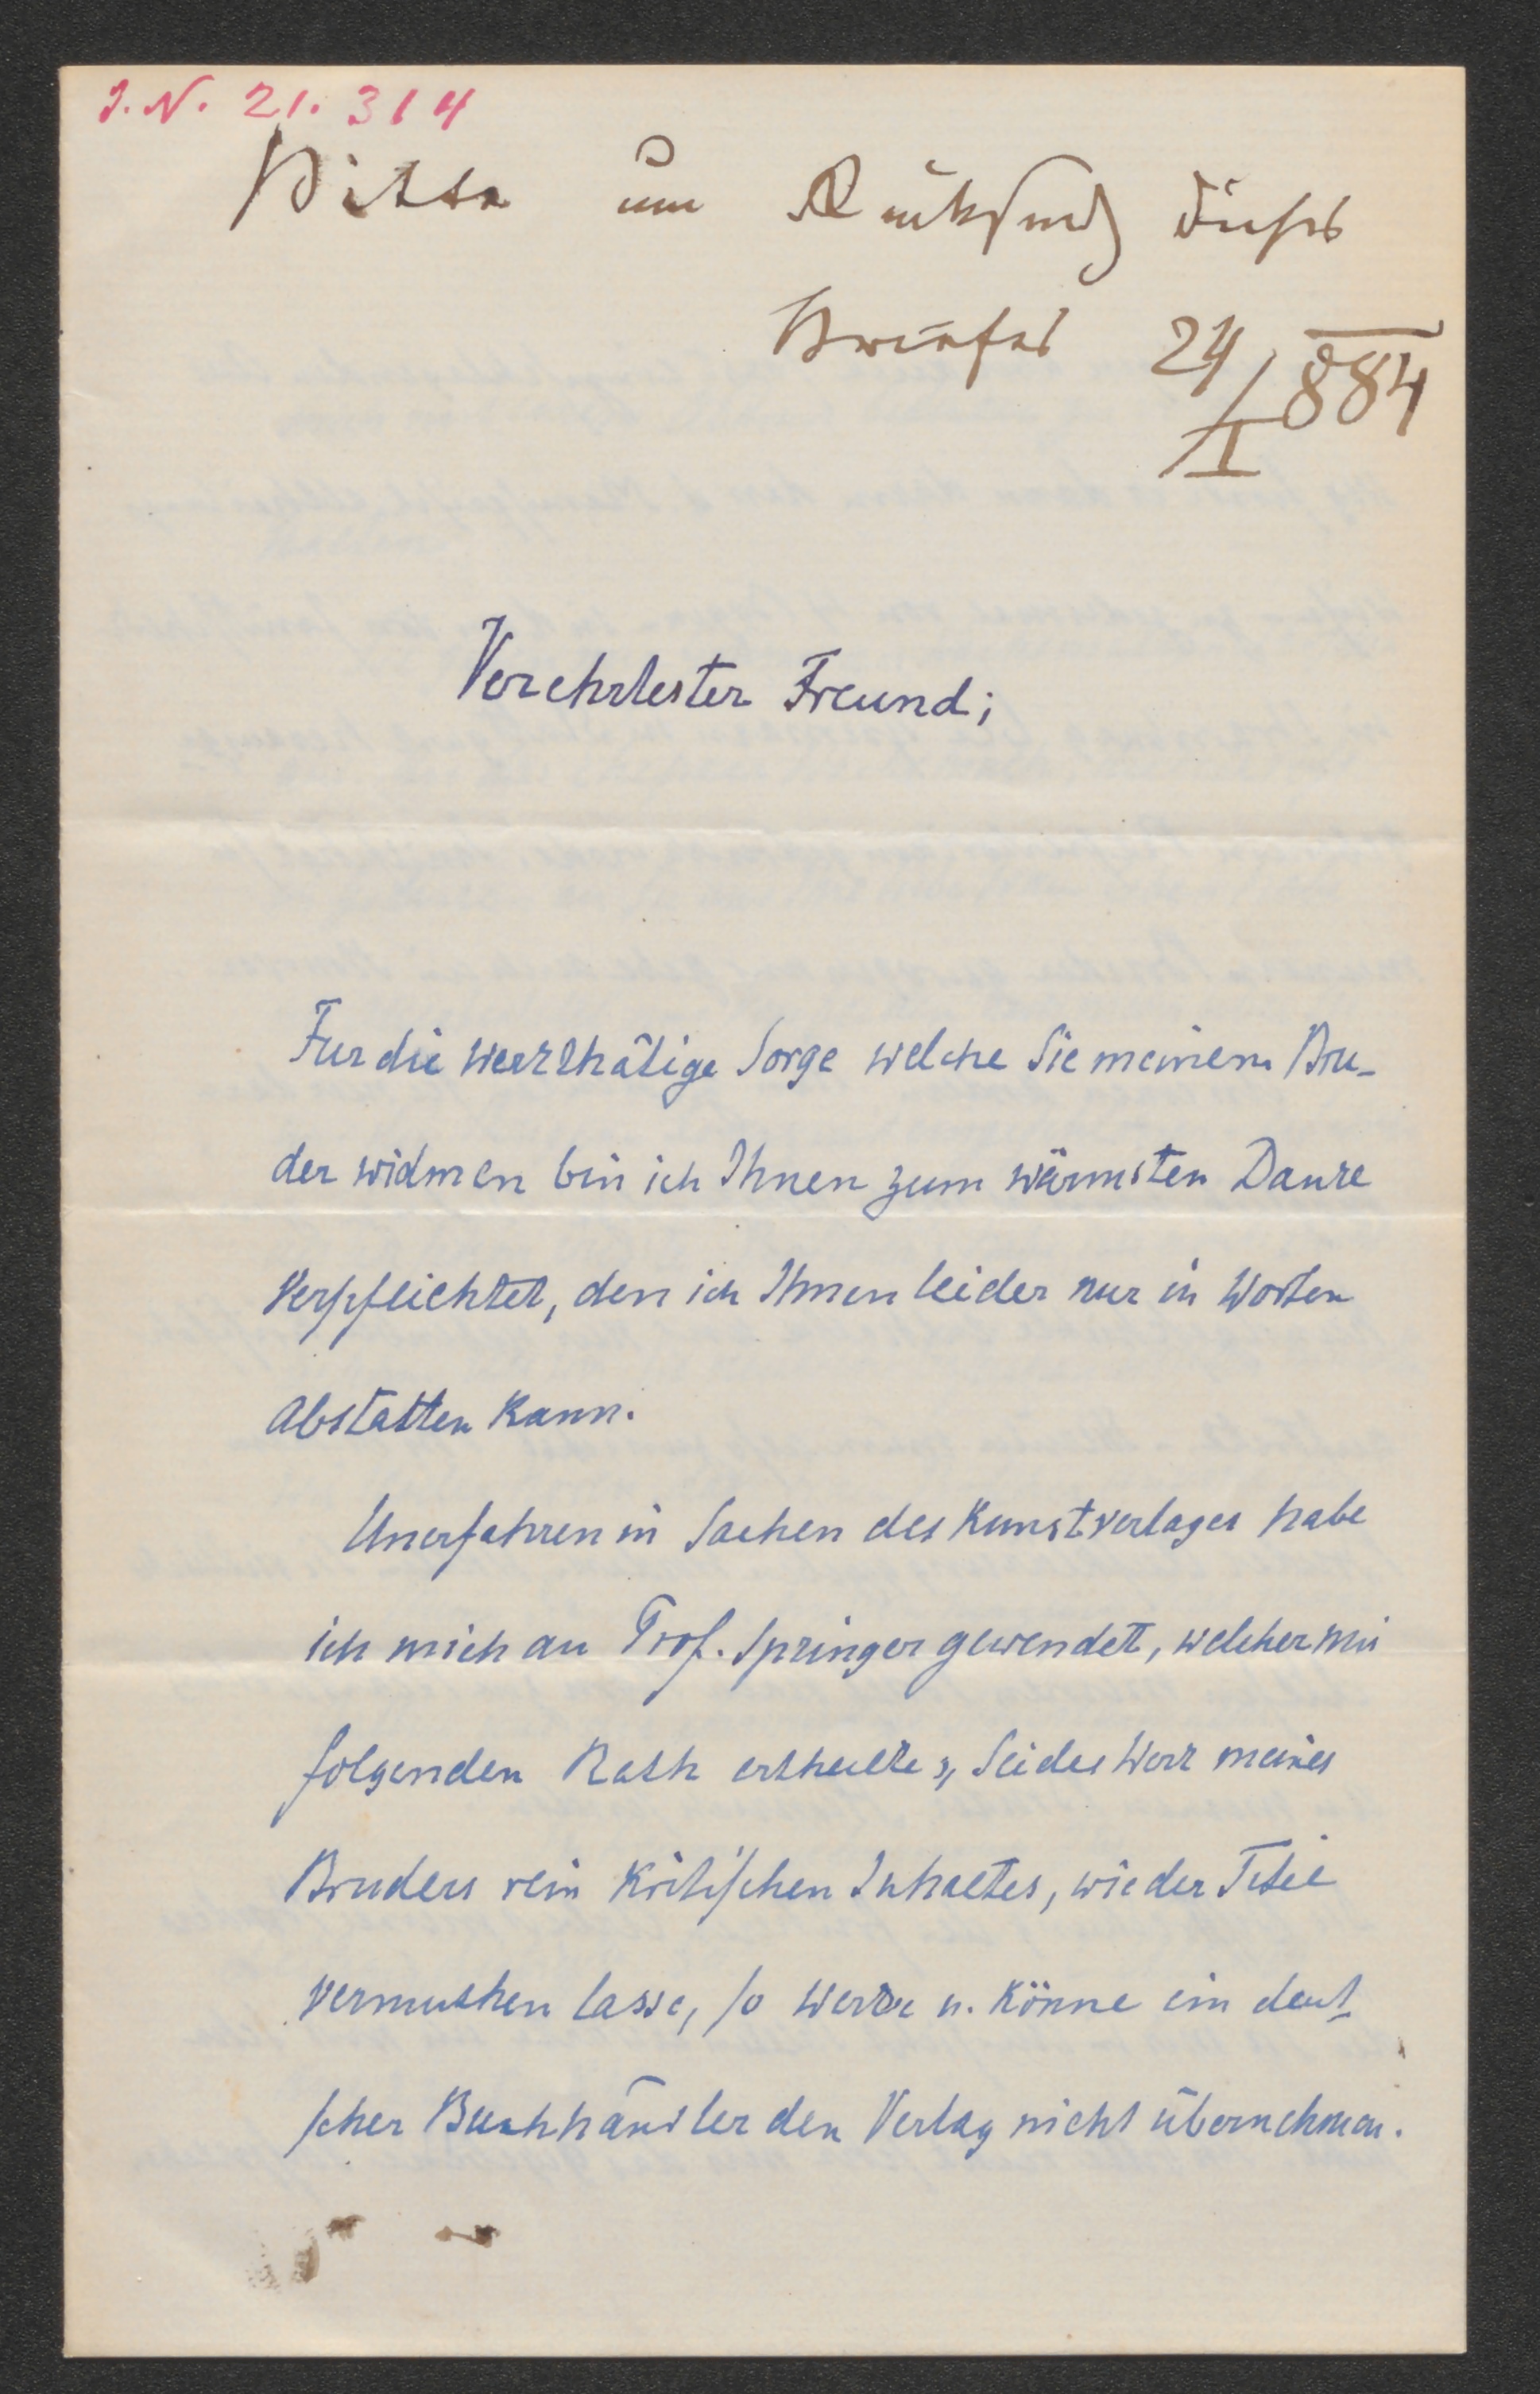 I. N. 21.314
Bitte um Rüksendg dieses
Briefes 24/I 884
Verehrtester Freund;
Fur die werkthätige Sorge welche Sie meinem Bru-
der widmen bin ich Ihnen zum wärmsten Danke
verpflichtet, den ich Ihnen leider nur in Worten
abstatten kann.
Unerfahren in Sachen des Kunstverlages habe
ich mich an Prof. Springer gewendet, welcher mir
folgenden Rath ertheilte „ Sei das Werk meines
Bruders rein kritischen Inhaltes, wie der Titel
vermuthen lasse, so werde u. könne ein deut-
scher Buchhändler den Verlag nicht übernehmen.